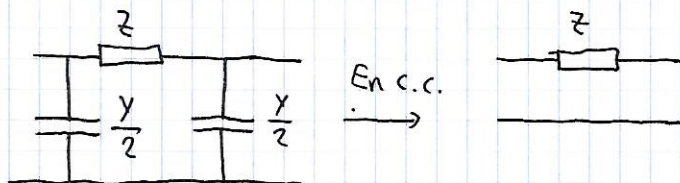 Z
Y/2
Y/2
En c.c.
Z